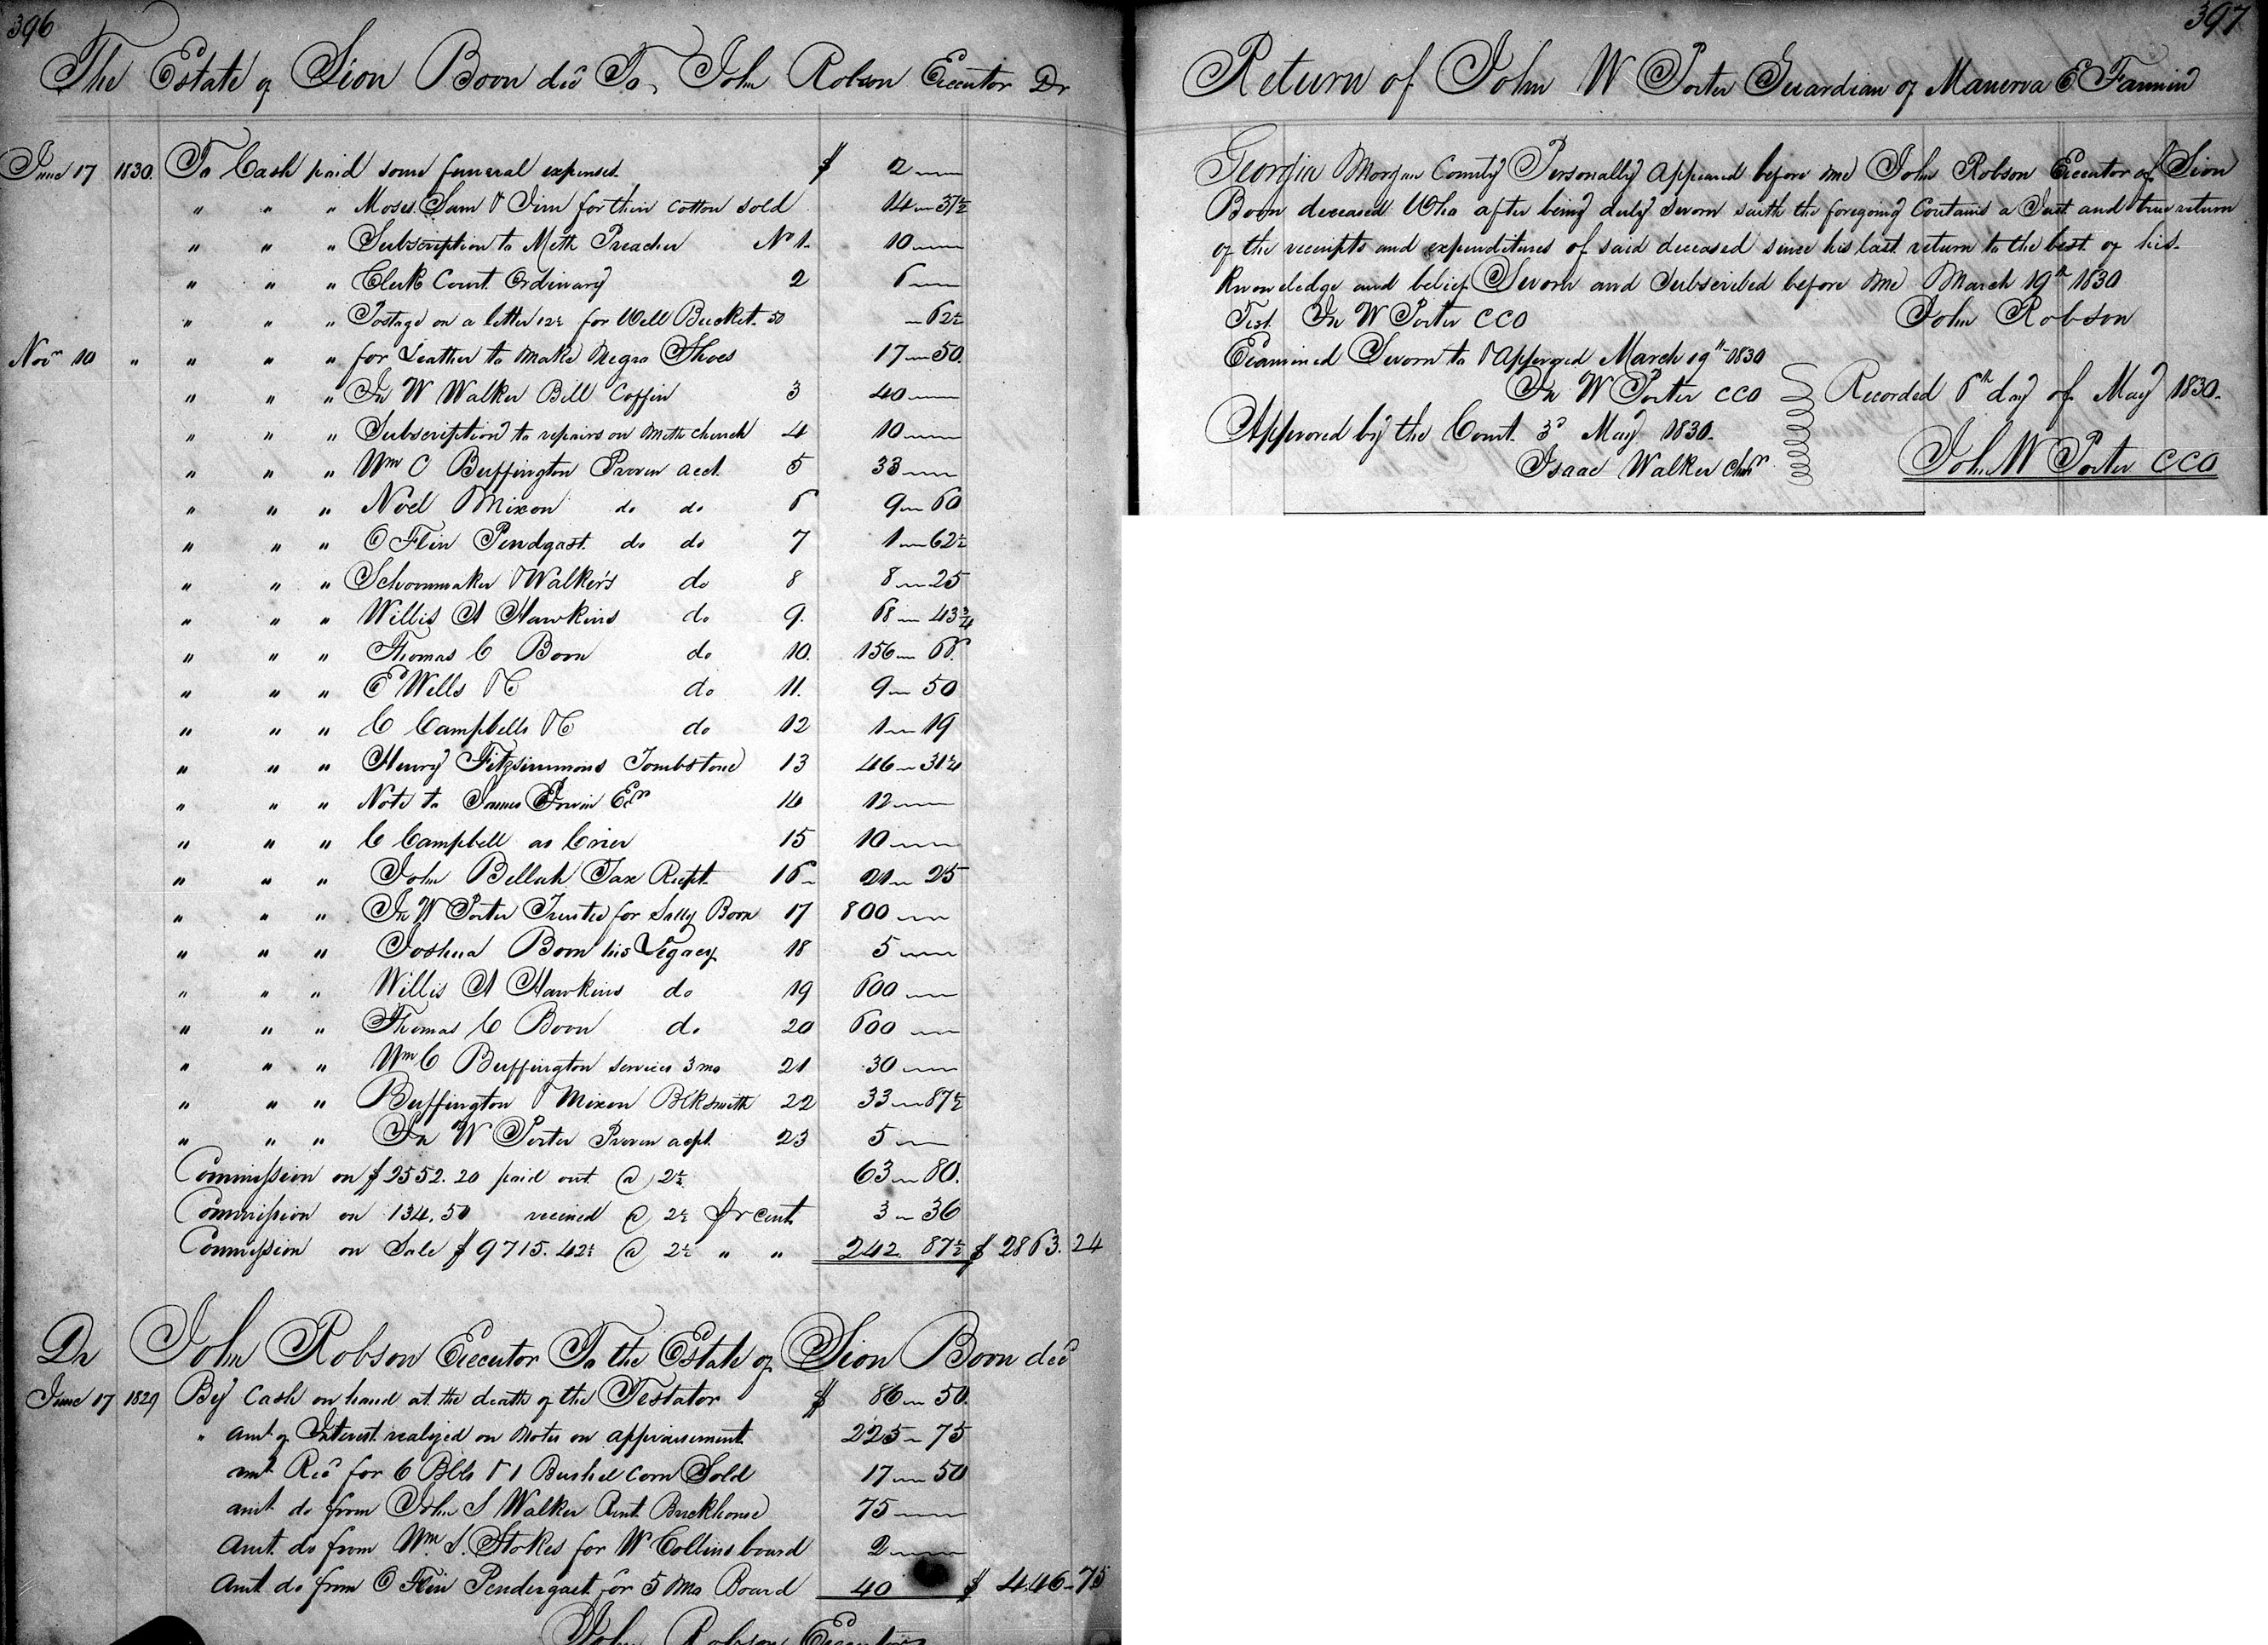 396
The Estate of Sion Boon decd To John Robson Executor Dr
June 17 1830. To Cash paid some funeral expenses $ 2 —
" " " Moses Sam & Jim for their cotton sold 14 — 37½
" " " Subscription to Meth Preacher No 1. 10 —
" " " Clerk Court Ordinary 2 6 —
" " " Postage on a letter 12½ for Well Bucket. 50 — 62½
Novr 10 " " " " for Leather to make Negro Shoes 17 — 50.
" " " Jn W Walker Bill Coffin 3 40 —
" " " Subscription to repairs on Meth church 4 10 —
" " " Wm C Buffington Proven acct. 5 33 —
" " " Noel Mixon do do 6 9 — 60
" " " O Flin Pendgast. do do 7 1 — 62½
" " " Schoonmaker & Walker's do 8 8 — 25
" " " Willis A Hawkins do 9. 68 — 43¾
" " " Thomas C Boon do 10. 156 — 68.
" " " E Wells & C do 11. 9 — 50
" " " C Campbells & C do 12 1 — 19
" " " Henry Fitzsimmons Tombstone 13 46 — 31¼
" " " Note to James Irwin Exr 14 12 —
" " " C Campbell as Crier 15 10 —
" " " John Bellah Tax Recpt. 16 21 — 25
" " " Jn W Porter Trustee for Sally Boon 17 800 —
" " " Joshua Boon his Legacy 18 5 —
" " " Willis A Hawkins do 19 600 —
" " " Thomas C Boon do 20 600 —
" " " Wm C Buffington services 3 mo 21 30 —
" " " Buffington & Mixon Blksmith 22 33 — 87½
" " " Jn W Porter Proven acpt. 23 5 —
Commission on $2552.20 paid out @ 2½ 63 — 80.
Commission on 134.50 received @ 2½ pr cent. 3 — 36
Commission on Sale $9715.42½ @ 2½ " " 242 87½ $ 2863.24
Dr John Robson Executor To the Estate of Sion Boon decd
June 17 1829 By Cash on hand at the death of the Testator $ 86 — 50.
" amt of Interest realized on Notes on appraisement 225 — 75
amt Recd for 6 Bbls & 1 Bushel corn Sold 17 — 50
amt do from John S Walker Rent Brickhouse 75 —
Amt. do from Wm. S. Stokes for W Collins board 2 —
Amt do from O Flin Pendergast for 5 Mo Board 40 $ 446 - 75
John Robson Executor
397
Return of John W Porter Guardian of Manerva E Fannin
Georgia Morgan County Personally appeared before me John Robson Executor of Sion
Boon deceased Who after being duly sworn saith the foregoing Contains a Just and true return
of the receipts and expenditures of said deceased since his last return to the best of his
knowledge and belief Sworn and subscribed before me March 19th 1830
Test. Jn W Porter CCO John Robson
Examined Sworn to & Approved March 19th 1830
Jn W Porter CCO Recorded 6th day of May 1830.
Approved by the Court. 3d May 1830.
Isaac Walker Chmn John W Porter CCO